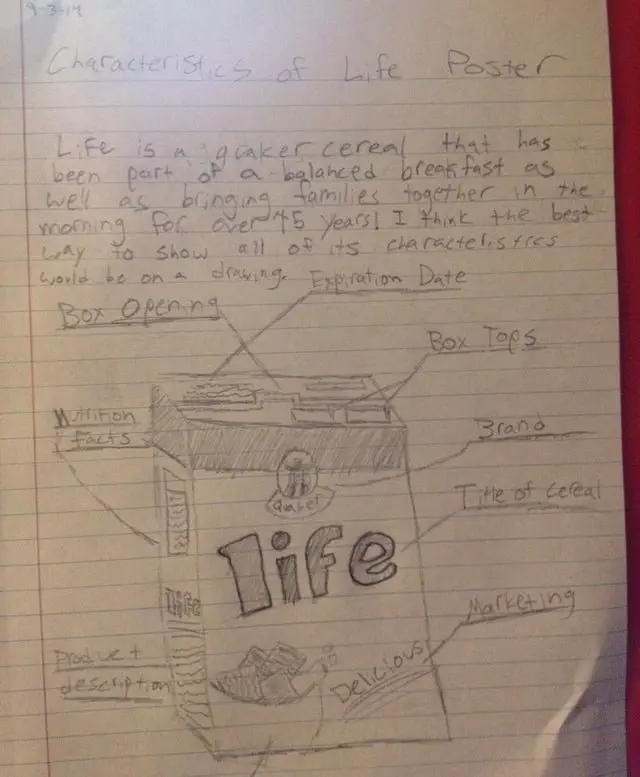 9-3-14
Characteristics of Life Poster
Life is a quaker cereal that has
been part of a balanced breakfast as
well as bringing families together in the
morning for over 45 years! I think the best
way to show all of its characteristics
would be on a drawing.
Expiration Date
Box Opening
Box Tops
Nutrition
facts
Brand
Quaker
Title of cereal
life
life
Marketing
Product
description
Delicious